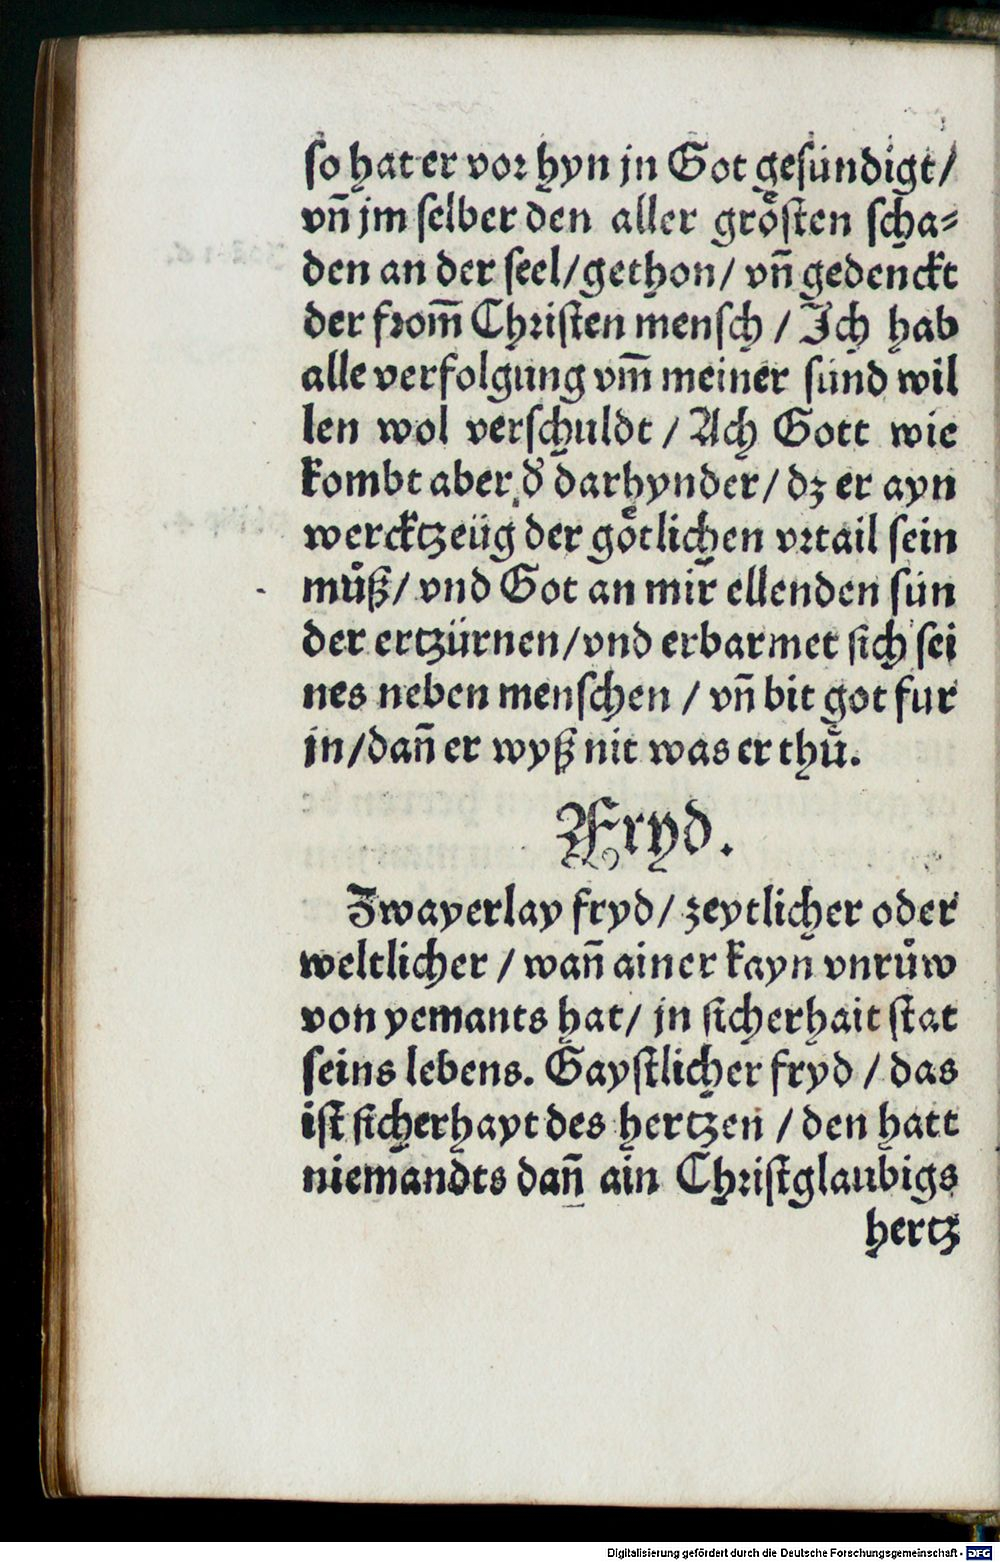 so hat er vor hyn jn Got gesündigt/
vn̄ jm selber den aller grösten scha⸗
den an der seel/gethon/ vn̄ gedenckt
der from̄ Christen mensch / Ich hab
alle verfolgung vm̄ meiner sünd wil
len wol verschuldt / Ach Gott wie
kombt aber d̕ darhynder/ dz er ayn
wercktzeüg der götlichen vrtail sein
mu̇ͦß/ vnd Got an mir ellenden sün
der ertzürnen/vnd erbarmet sich sei
nes neben menschen / vn̄ bit got fur
jn/dan̄ er wyß nit was er thuͦ.
Fryd.
Zwayerlay fryd/ zeytlicher oder
weltlicher / wan̄ ainer kayn vnruͦw
von yemants hat/ jn sicherhait stat
seins lebens. Gaystlicher fryd / das
ist sicherhayt des hertzen / den hatt
niemandts dan̄ ain Christglaubigs
hertz
Digitalisierung gefördert durch die Deutsche Forschungsgemeinschaft - DFG